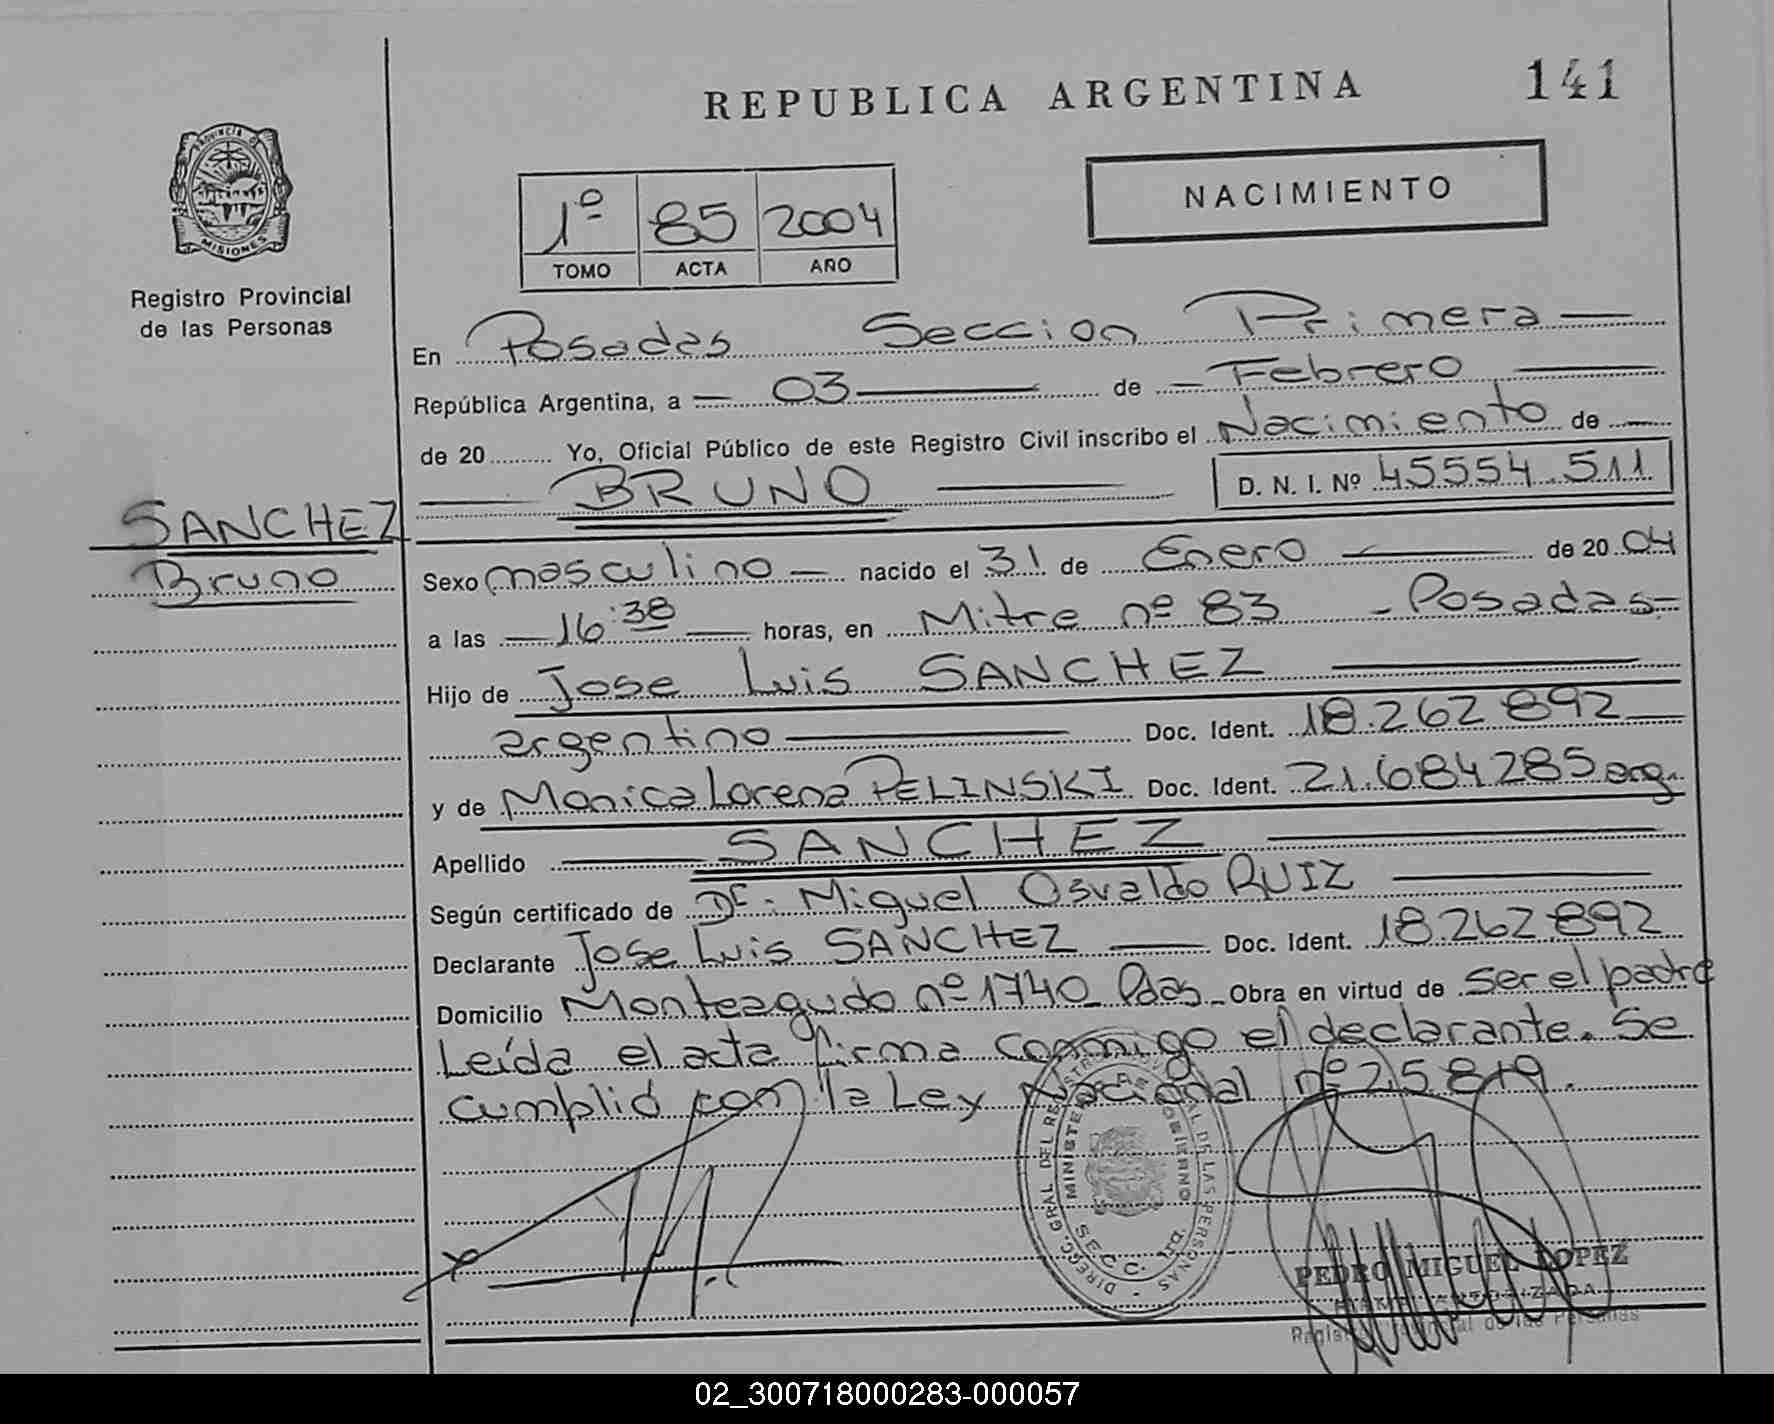 REPUBLICA ARGENTINA
141
PROVINCIA DE
MISIONES
Registro Provincial
de las Personas
1º 85 2004
TOMO ACTA AÑO
NACIMIENTO
En Posadas Seccion Primera
República Argentina, a 03 de Febrero
de 20 Yo, Oficial Público de este Registro Civil inscribo el Nacimiento de
BRUNO D. N. I. Nº 45554.511
SANCHEZ
Bruno
Sexo masculino nacido el 31 de Enero de 20 04
a las 16:38 horas, en Mitre nº 83 - Posadas-
Hijo de Jose Luis SANCHEZ
argentino Doc. Ident. 18.262.892
y de Monica Lorena PELINSKI Doc. Ident. 21.684.285 arg.
Apellido SANCHEZ
Según certificado de Dr. Miguel Osvaldo RUIZ
Declarante Jose Luis SANCHEZ Doc. Ident. 18.262.892
Domicilio Monteagudo nº 1740 Pdas - Obra en virtud de ser el padre
Leída el acta firma conmigo el declarante. Se
cumplió con la Ley Nacional nº 25.819.
MINISTE DE GOBIERNO
SECC.
PEDRO MIGUEL LOPEZ
02_300718000283-000057